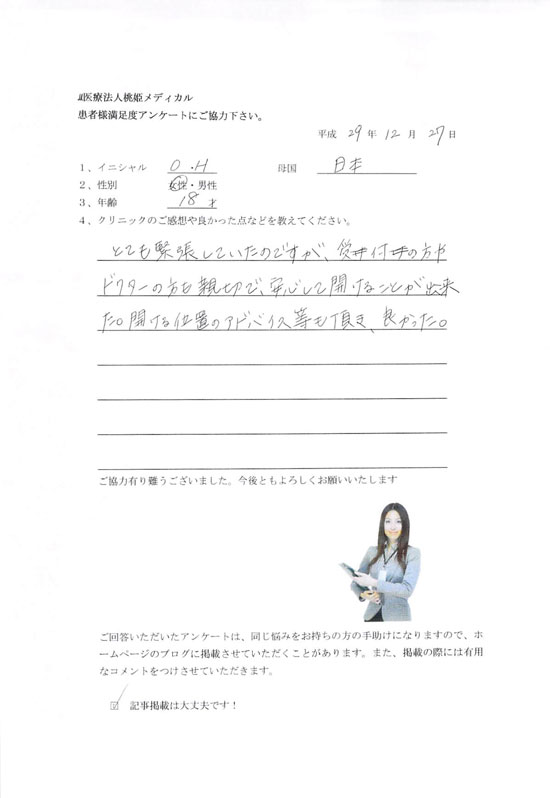 医療法人桃姫メディカル
患者様満足度アンケートにご協力下さい。
平成 29 年 12 月 27 日
1、イニシャル O.H 母国 日本
2、性別 女性・男性
3、年齢 18 才
4、クリニックのご感想や良かった点などを教えてください。
とても緊張していたのですが、受付の方や
ドクターの方も親切で、安心して開けることが出来
た。開ける位置のアドバイス等も頂き、良かった。
ご協力有り難うございました。今後ともよろしくお願いいたします
ご回答いただいたアンケートは、同じ悩みをお持ちの方の手助けになりますので、ホ
ームページのブログに掲載させていただくことがあります。また、掲載の際には有用
なコメントをつけさせていただきます。
☑ 記事掲載は大丈夫です！